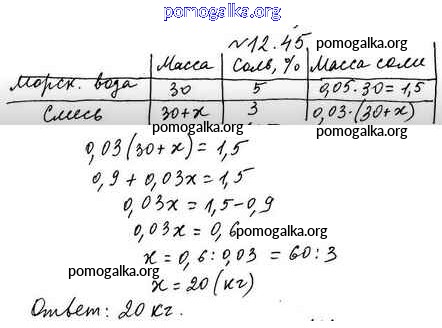 pomogalka.org
№12.45.
pomogalka.org
Масса Соль, % Масса соли
Морск. вода 30 5 0,05·30=1,5
Смесь 30+x 3 0,03·(30+x)
pomogalka.org pomogalka.org
0,03(30+x)=1,5
0,9+0,03x=1,5
0,03x=1,5-0,9
0,03x=0,6
pomogalka.org
x=0,6:0,03=60:3
pomogalka.org
x=20(кг)
pomogalka.org
Ответ: 20 кг.